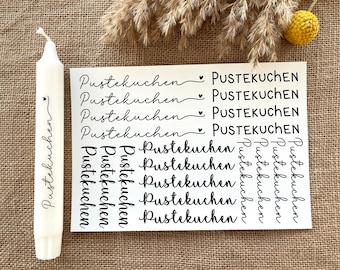 Pustekuchen
Pustekuchen PUSTEKUCHEN
Pustekuchen PUSTEKUCHEN
Pustekuchen PUSTEKUCHEN
Pustekuchen PUSTEKUCHEN
Pustekuchen
Pustekuchen
Pustekuchen
Pustekuchen
Pustekuchen
Pustekuchen
Pustekuchen
Pustekuchen
Pustekuchen
Pustekuchen
Pustekuchen
Pustekuchen